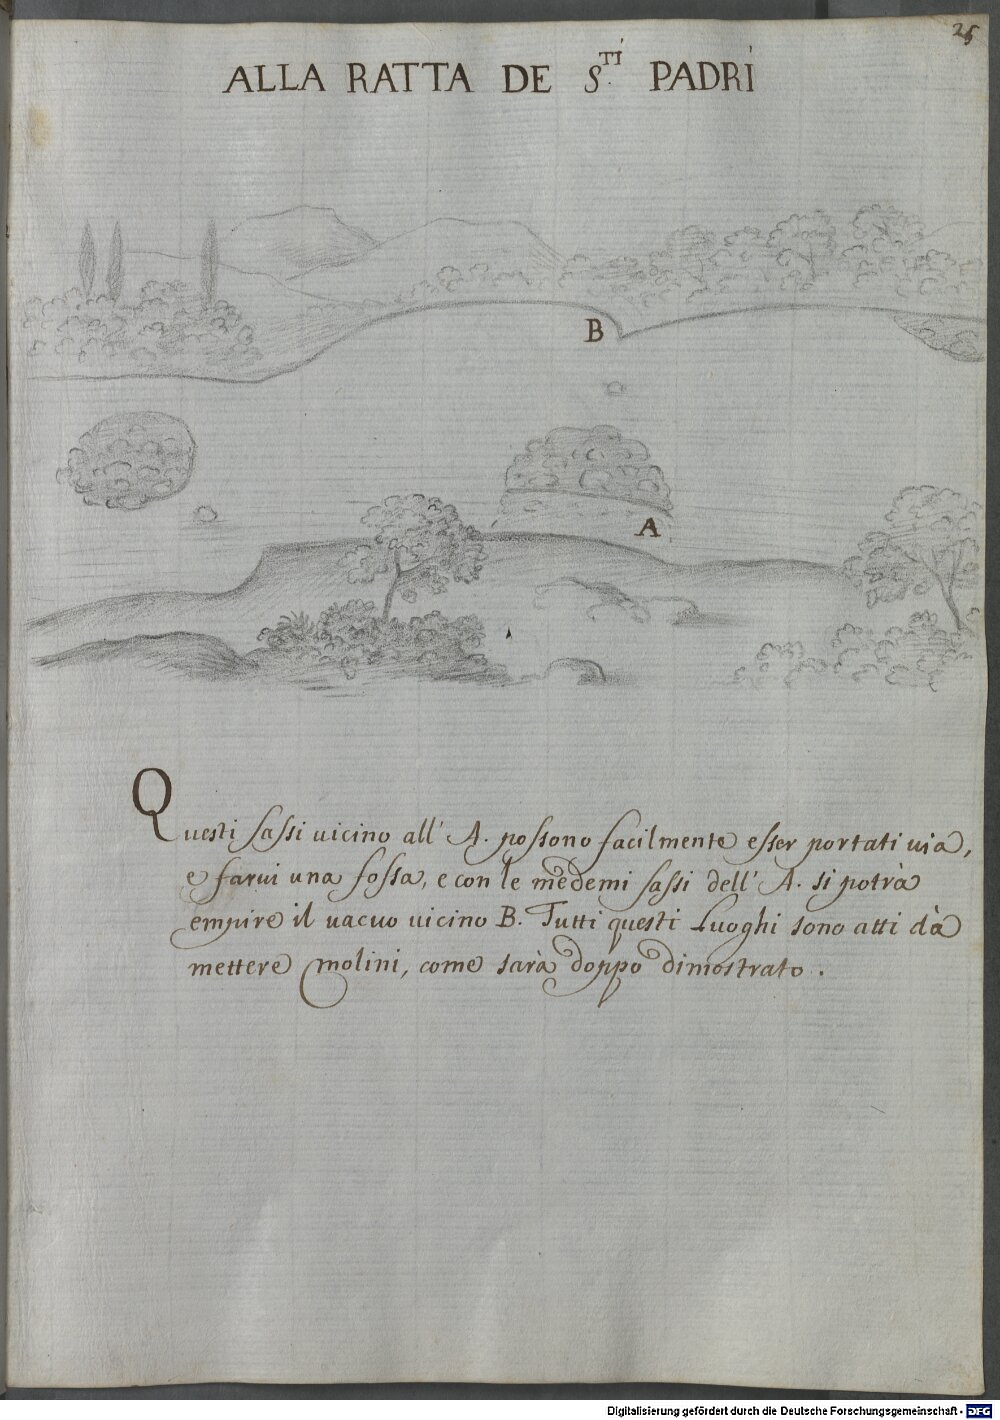 25
ALLA RATTA DE S.TI PADRI
B
A
Questi sassi uicino all' A. possono facilmente esser portati uia,
e farui una fossa, e con le medemi sassi dell' A. si potrà
empire il uacuo uicino B. Tutti questi Luoghi sono atti dà
mettere molini, come sarà doppo dimostrato.
Digitalisierung gefördert durch die Deutsche Forschungsgemeinschaft - DFG